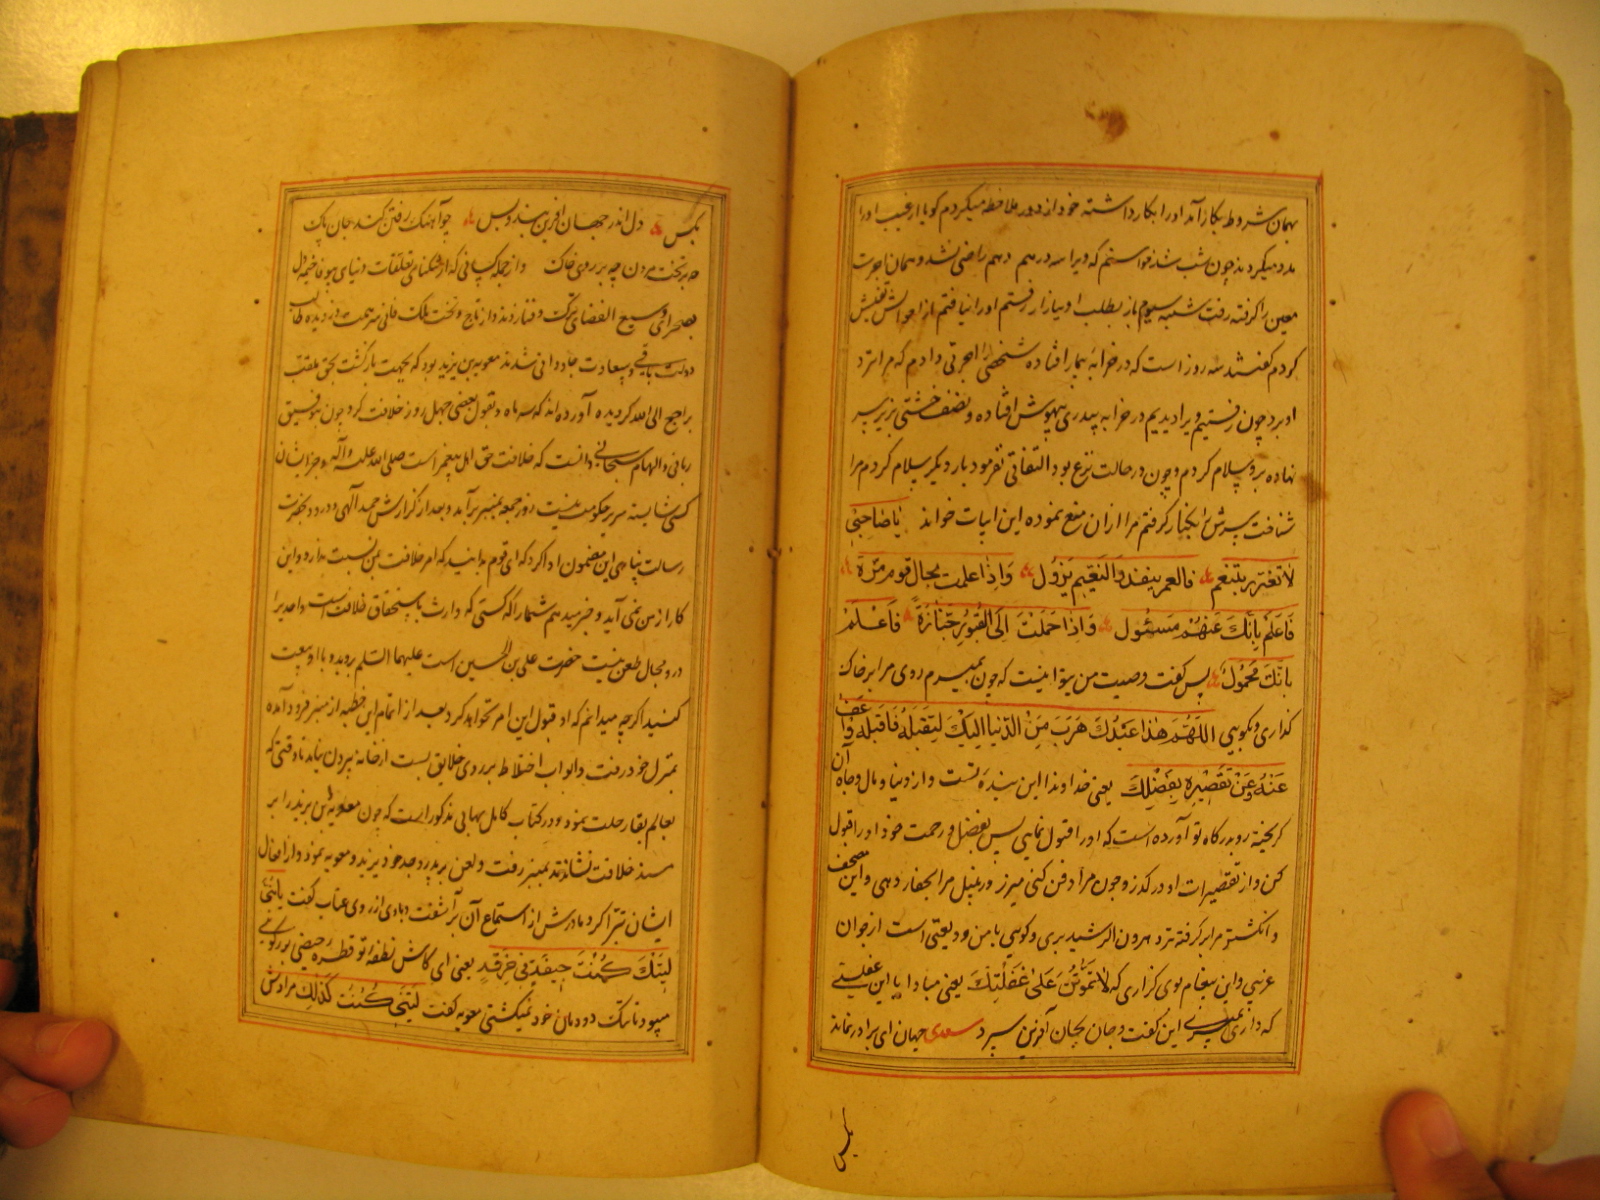 بهمان شروط بکار آمد او را بکار داشته خود از دور ملاحظه میکردم گویا از غیب او را
مدد میکردند چون شب شد خواستم که ویرا سه درهم دهم راضی نشد و همان اجرت
معین را گرفته رفت شنبه سیوم باز بطلب او ببازار رفتم او را نیافتم از احوالش تفتیش
کردم گفتند سه روز است که در خرابهٔ بیمار افتاده شخصی را اجرتی دادم که مرا نزد
او برد چون رفتیم ویرا دیدیم در خرابه بیدری بیهوش افتاده و نصف خشتی بزیر سر
نهاده بر و سلام کردم و چون در حالت نزع بود التفاتی نفرمود بار دیگر سلام کردم مرا
شناخت سرش را بکنار گرفتم مرا از ان منع نموده این ابیات خواند یا صاحبی
لا تغترر بتنعم فالعمر ینفد والنعیم یزول واذا علمت بحال قوم مرة
فاعلم بانک عنهم مسئول واذا حملت الی القبور جنازة فاعلم
بانک محمول پس گفت وصیت من بتو اینست که چون بمیرم روی مرا بر خاک
گذاری و بگویی اللهم هذا عبدک هرب من الدنیا الیک لتقبله فاقبله واعف
عنه وعن تقصیره بفضلک یعنی خداوندا این بندهٔ تست و از دنیا و مال و جاه آن
گریخته رو بدرگاه تو آورده است که او را قبول نمایی پس بفضل و رحمت خود او را قبول
کن و از تقصیرات او در گذر و چون مرا دفن کنی میزر و زنبیل مرا بحفار دهی و این مصحف
و انگشتر مرا بر گرفته نزد هرون الرشید بری و گویی با من ودیعتی است از جوان
غریبی و این پیغام بوی گزاری که لا تموتن علی غفلتک یعنی مبادا با این غفلتی
که داری بمیری این گفت و جان بجهان آفرین سپرد سعدی جهان ای برادر نماند
بکس
بکس دل اندر جهان افرین بند و بس چو آهنگ رفتن کند جان پاک
چه بر تخت مردن چه بر روی خاک و از جمله کسانی که از تنکنای تعلقات دنیای بیوفا خیمهٔ دل
بصحرای وسیع الفضای ترک و فنا زدند و از تاج و تخت ملک فانی سر همت دزدیده طالب
دولت باقی و سعادت جاودانی شدند معویه بن یزید بود که بجهت بازگشت بحق ملقب
براجع الی الله کردیده آورده اند که سه ماه و بقول بعضی چهل روز خلافت کرد چون بتوفیق
ربانی و الهام سبحانی دانست که خلافت حق اهل بیت پیغمبر است صلی الله علیه وآله و جز ایشان
کسی شایسته سریر حکومت نیست روز جمعه بمنبر بر آمد و بعد از گزارش حمد الهی و درود بحضرت
رسالت پناهی این مضمون ادا کرد که ای قوم بدانید که امر خلافت بمن نسبت ندارد و این
کار از من نمی آید و خبر میدهم شما را که کسی که وارث باستحقاق خلافت است و احدیرا
درو مجال طعن نیست حضرت علی بن الحسین است علیهما السلم روید و با او بیعت
کنید اگرچه میدانم که او قبول این امر نخواهد کرد بعد از اتمام این خطبه از منبر فرود آمده
بمنزل خود رفت و ابواب اختلاط بر روی خلایق بست از خانه بیرون نیامد تا وقتی که
بعالم بقا رحلت نمود و در کتاب کامل بهایی مذکور است که چون معویه بن یزید را بر
مسند خلافت نشاندند بمنبر رفت و لعن بر پدر و جد خود یزید و معویه نمود و از افعال
ایشان تبرا کرد مادرش از استماع آن برآشفت و باوی از روی عتاب گفت یا بنی
لیتک کنت حیضة فی خرقة یعنی ای کاش نطفهٔ تو قطره حیضی بود
میبود تا ننگ دودمان خود نمیکشتی معویه گفت لیتنی کنت کذلک مرادش